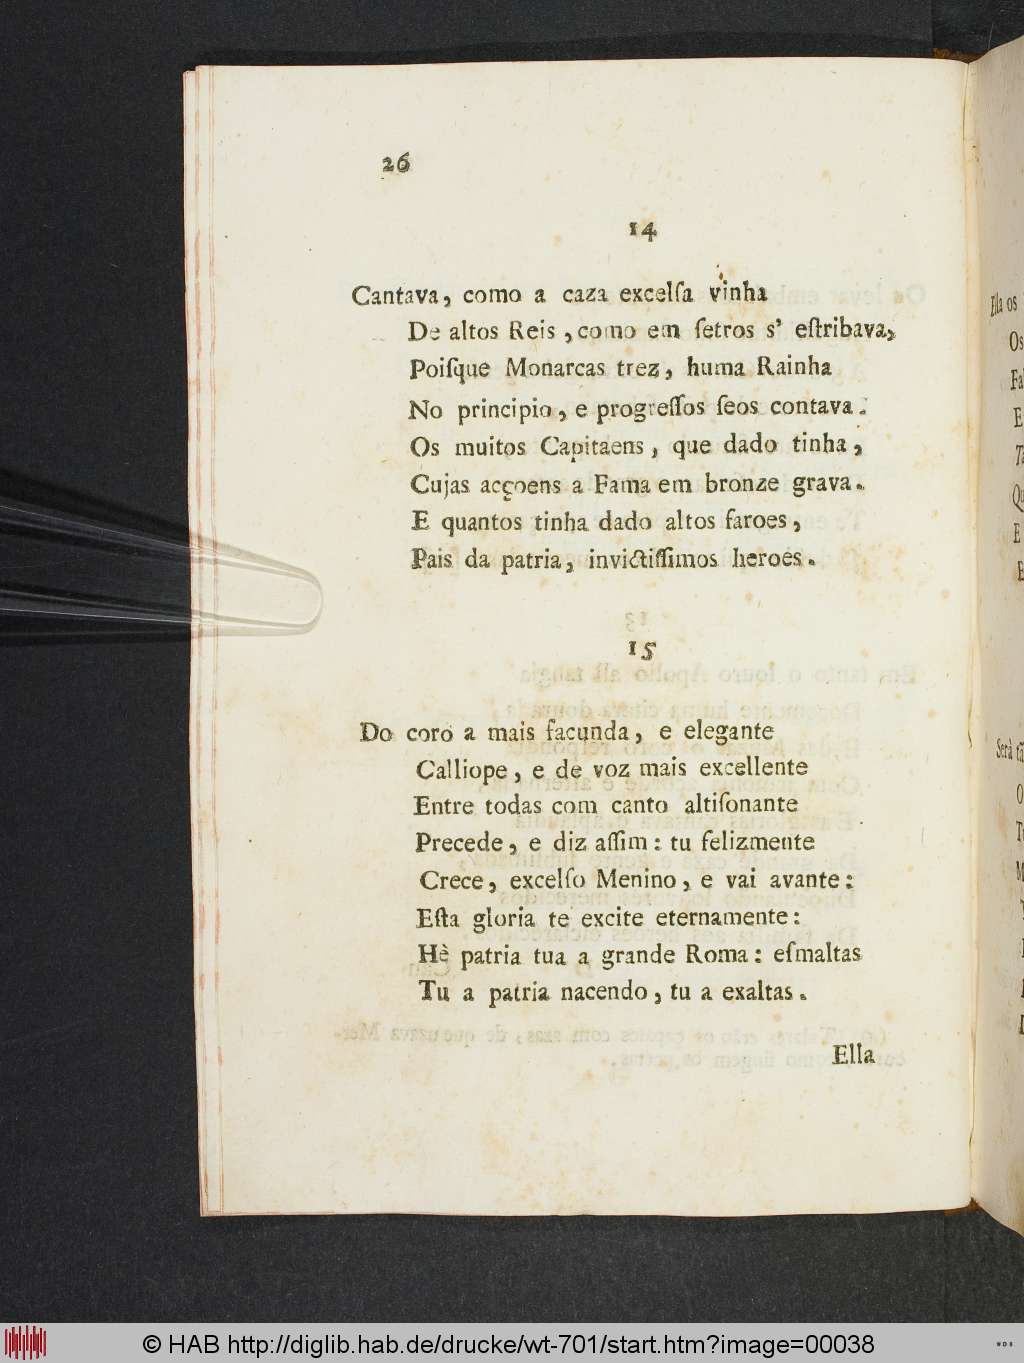 26
14
Cantava, como a caza excelſa vinha
De altos Reis, como em ſetros s' eſtribava,
Poiſque Monarcas trez, huma Rainha
No principio, e progreſſos ſeos contava.
Os muitos Capitaens, que dado tinha,
Cujas acçoens a Fama em bronze grava.
E quantos tinha dado altos faroes,
Pais da patria, invictiſſimos heroes.
15
Do coro a mais facunda, e elegante
Calliope, e de voz mais excellente
Entre todas com canto altiſonante
Precede, e diz aſſim: tu felizmente
Crece, excelſo Menino, e vai avante:
Eſta gloria te excite eternamente:
Hè patria tua a grande Roma: eſmaltas
Tu a patria nacendo, tu a exaltas.
Ella
Ella os
Os
E
E
Será
O
© HAB http://diglib.hab.de/drucke/wt-701/start.htm?image=00038